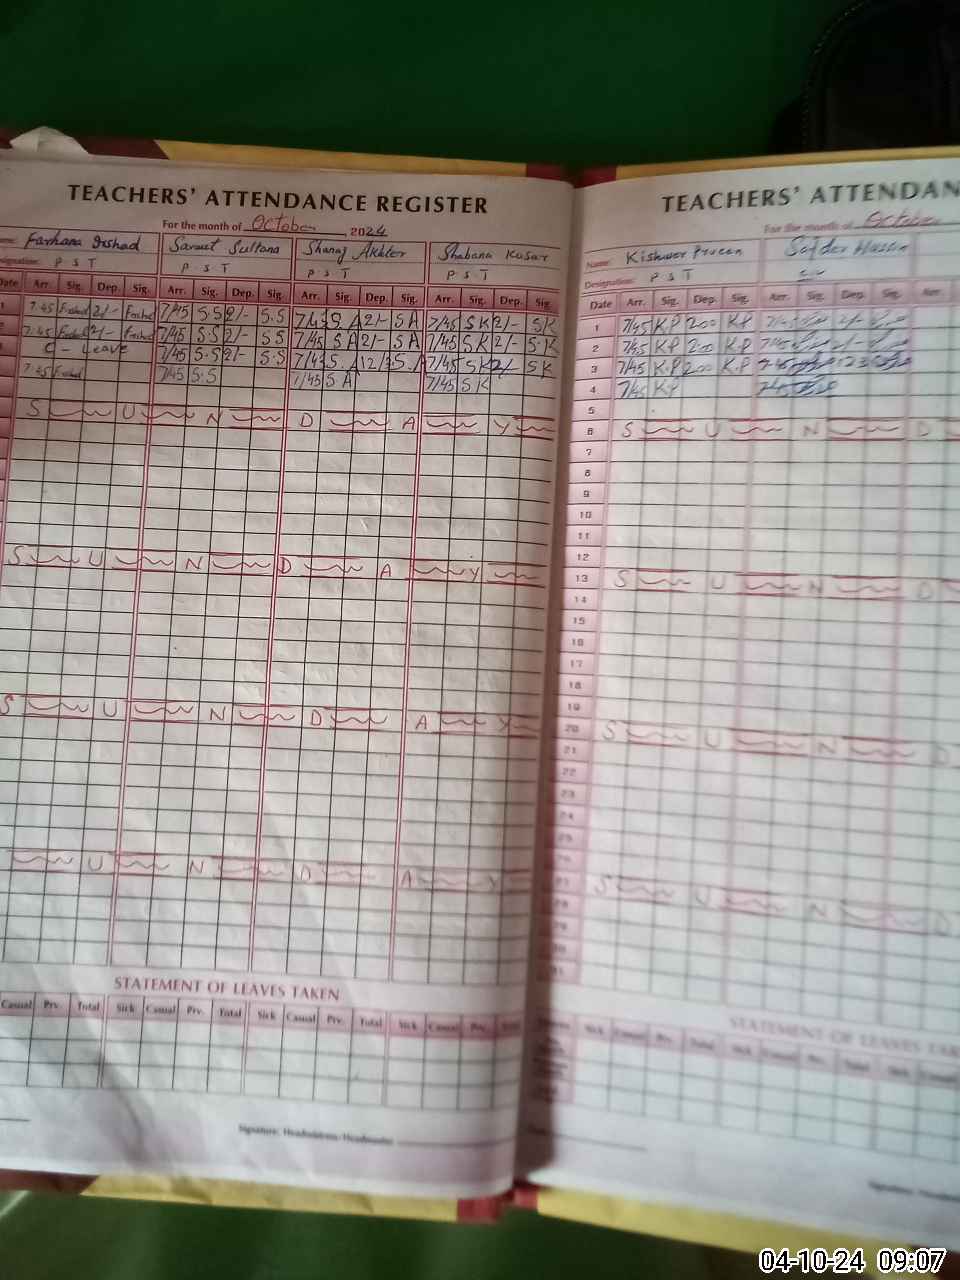 TEACHERS' ATTENDANCE REGISTER
For the month of October 2024
Name: Farhana Irshad Sarwat Sultana Shanaz Akhter Shabana Kosar
Designation: P S T P.S.T P S T P S T
Date Arr. Sig. Dep. Sig. Arr. Sig. Dep. Sig. Arr. Sig. Dep. Sig. Arr. Sig. Dep. Sig.
1 7:45 Farhad 2/- Farhad 7/45 S.S 2/- S.S 7/45 S A 2/- S A 7/45 S K 2/- S K
2 7:45 2/- 7/45 S.S 2/- S S 7/45 S A 2/- S A 7/45 S K 2/- S.K
C - Leave 7/45 S.S 2/- S.S 7/45 S.A 12/3 S.A 7/45 S K 2/- S K
7:45 7/45 S.S 7/45 S A 7/45 S K
S U N D A Y
S U N D A Y
S U N D A Y
U N D A Y
STATEMENT OF LEAVES TAKEN
Casual Prv. Total Sick Casual Prv. Total Sick Casual Prv. Total Sick Casual Prv. Total
Signature: Headmistress/Headmaster
TEACHERS' ATTENDAN
For the month of October
Name: Kishwer Praeen Safder Hussain
Designation: P S T
Date Arr. Sig. Dep. Sig. Arr. Sig. Dep. Sig. Arr.
1 7/45 K.P 2:00 K.P 7:45 2/-
2 7/45 K.P 2:00 K.P 7:45 2/-
3 7/45 K.P 2:00 K.P 7:45 12:3
4 7/45 K.P 7:45
5
6 S U N D
7
8
9
10
11
12
13 S U N D
14
15
16
17
18
19
20 S U N D
21
22
23
24
25
26
27 S U N D
28
29
30
31
STATEMENT OF LEAVES TAK
Sick Casual Prv. Total Sick Casual Prv. Total Sick Casual
04-10-24 09:07